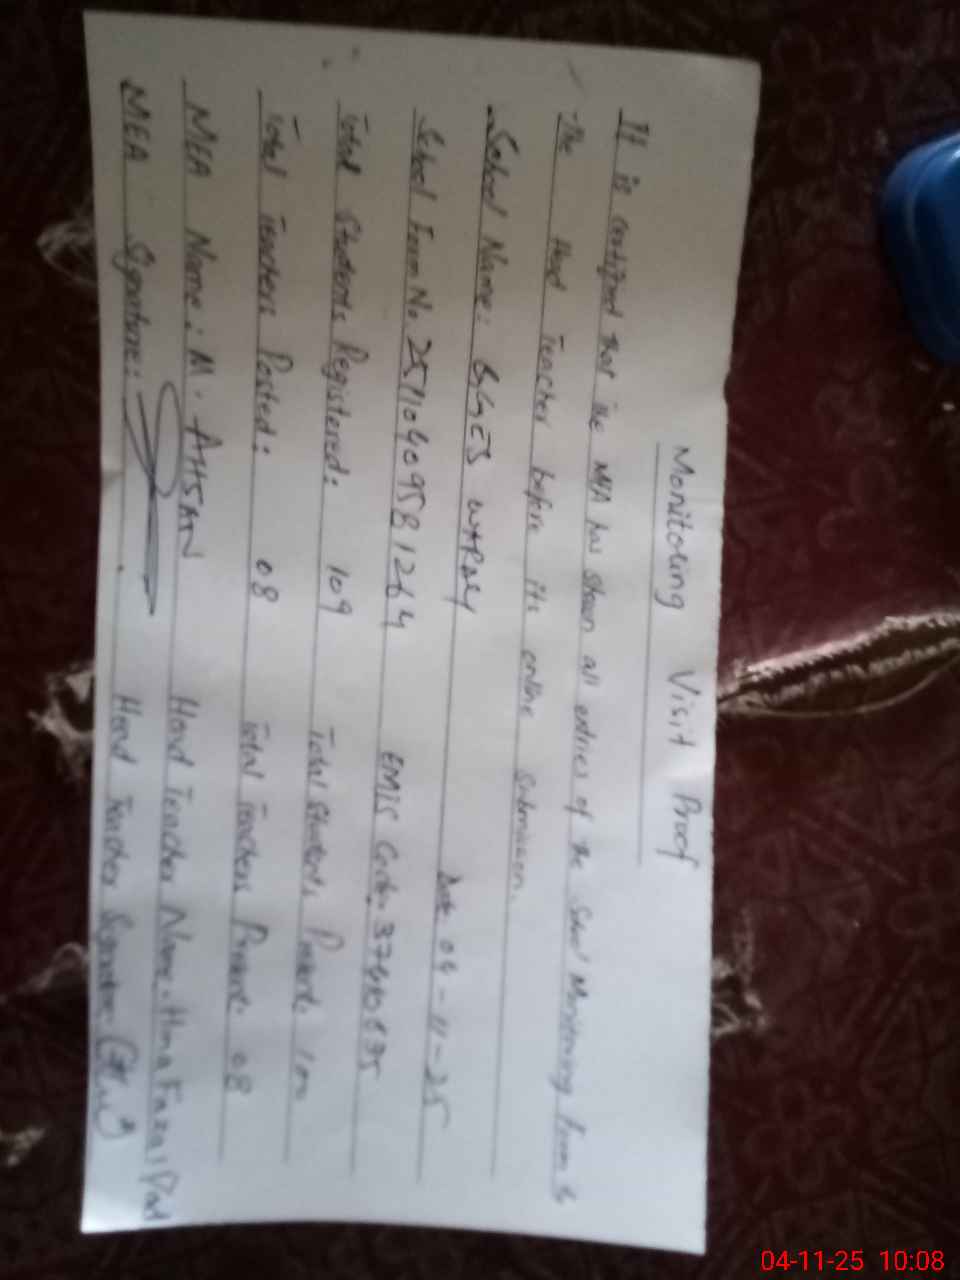 Monitoring Visit Proof
It is certified that the MEA has shown all entries of the School Monitoring Form to
the Head Teacher before its online submission.
School Name: GGES Date 04-11-25
School Form No. 25110409581264 EMIS Code: 37410
Total Students Registered: 109 Total Students Present: 100
Total Teachers Posted: 08 Total Teachers Present: 08
MEA Name: M. AHSAN Head Teacher Name: Huma Fazal Dad
MEA Signature: Head Teacher Signature:
04-11-25 10:08